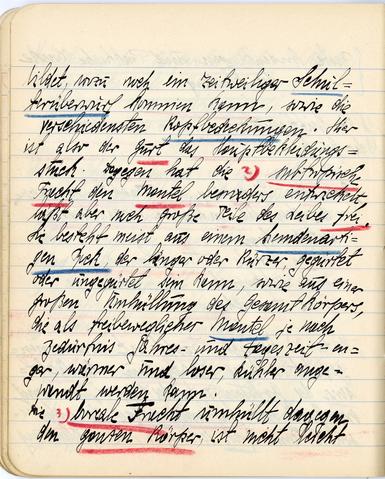 bildet, wozu noch ein zeitweiliger Schul-
terüberwurf kommen kann, sowie die
verschiedensten Kopfbedeckungen. Hier
ist also der Gurt das Hauptbekleidungs-
stück. Dagegen hat die 2)
Tracht den Mantel besonders entwickelt,
läßt aber noch große Teile des Leibes frei.
Sie besteht meist aus einem hemdenarti-
gen Rock, der länger oder kürzer, gegürtet
oder ungegürtet sein kann, sowie aus einer
großen Umhüllung des Gesamtkörpers,
die als freibeweglicher Mantel je nach
Bedürfnis Jahres- und Tageszeit en-
ger, wärmer und loser, kühler ange-
wandt werden kann.
Die 3) boreale Tracht umhüllt dagegen
den ganzen Körper, ist nicht leicht